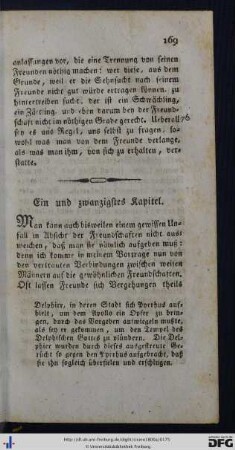 169
anlassungen vor, die eine Trennung von seinen
Freunden nöthig machen: wer diese, aus dem
Grunde, weil er die Sehnsucht nach seinem
Freunde nicht gut würde ertragen können, zu
hintertreiben sucht, der ist ein Schwächling,
ein Zärtling, und eben darum den der Freund-
schaft nicht im nöthigen Grade gerecht. Ueberall
sey es uns Regel, uns selbst zu fragen, so-
wohl was man von dem Freunde verlange,
als was man ihm, von sich zu erhalten, ver-
statte.
Ein und zwanzigstes Kapitel.
Man kann auch bisweilen einem gewissen Un-
fall in Absicht der Freundschaften nicht aus-
weichen, daß man sie nämlich aufgeben muß:
denn ich komme in meinem Vortrage nun von
den vertrauten Verbindungen zwischen weisen
Männern auf die gewöhnlichen Freundschaften.
Oft lassen Freunde sich Vergehungen theils
Delphier, in deren Stadt sich Pyrrhus auf-
hielt, um dem Apollo ein Opfer zu brin-
gen, durch das Vorgeben aufwiegeln mußte,
als sey er gekommen, um den Tempel des
Delphischen Gottes zu plündern. Die Del-
phier wurden durch dieses ausgestreute Ge-
rücht so gegen den Pyrrhus aufgebracht, daß
sie ihn sogleich überfielen und erschlugen.
© Universitätsbibliothek Freiburg
gefördert durch die
DFG